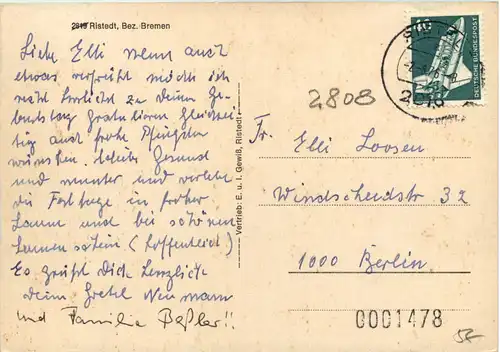 2819 Ristedt, Bez. Bremen
Liebe Elli wenn auch
etwas verspätet möchte ich
recht herzlich zu Deinem Ge-
burtstag Gratulieren Gleichzei-
tig auch frohe Pfingsten
wünschen. bleibe Gesund
und munter und verlebe
die Festtage in froher
Laune und bei schönem
(hoffentlich)
Es grüßt Dich herzlich
deine Gretel Neumann
und Familie Beßler!!
Vertrieb: E. u. I. Gewiß, Ristedt
DEUTSCHE BUNDESPOST
2808
Fr.
Elli Loosen
Windscheidstr 32
1000 Berlin
0001478